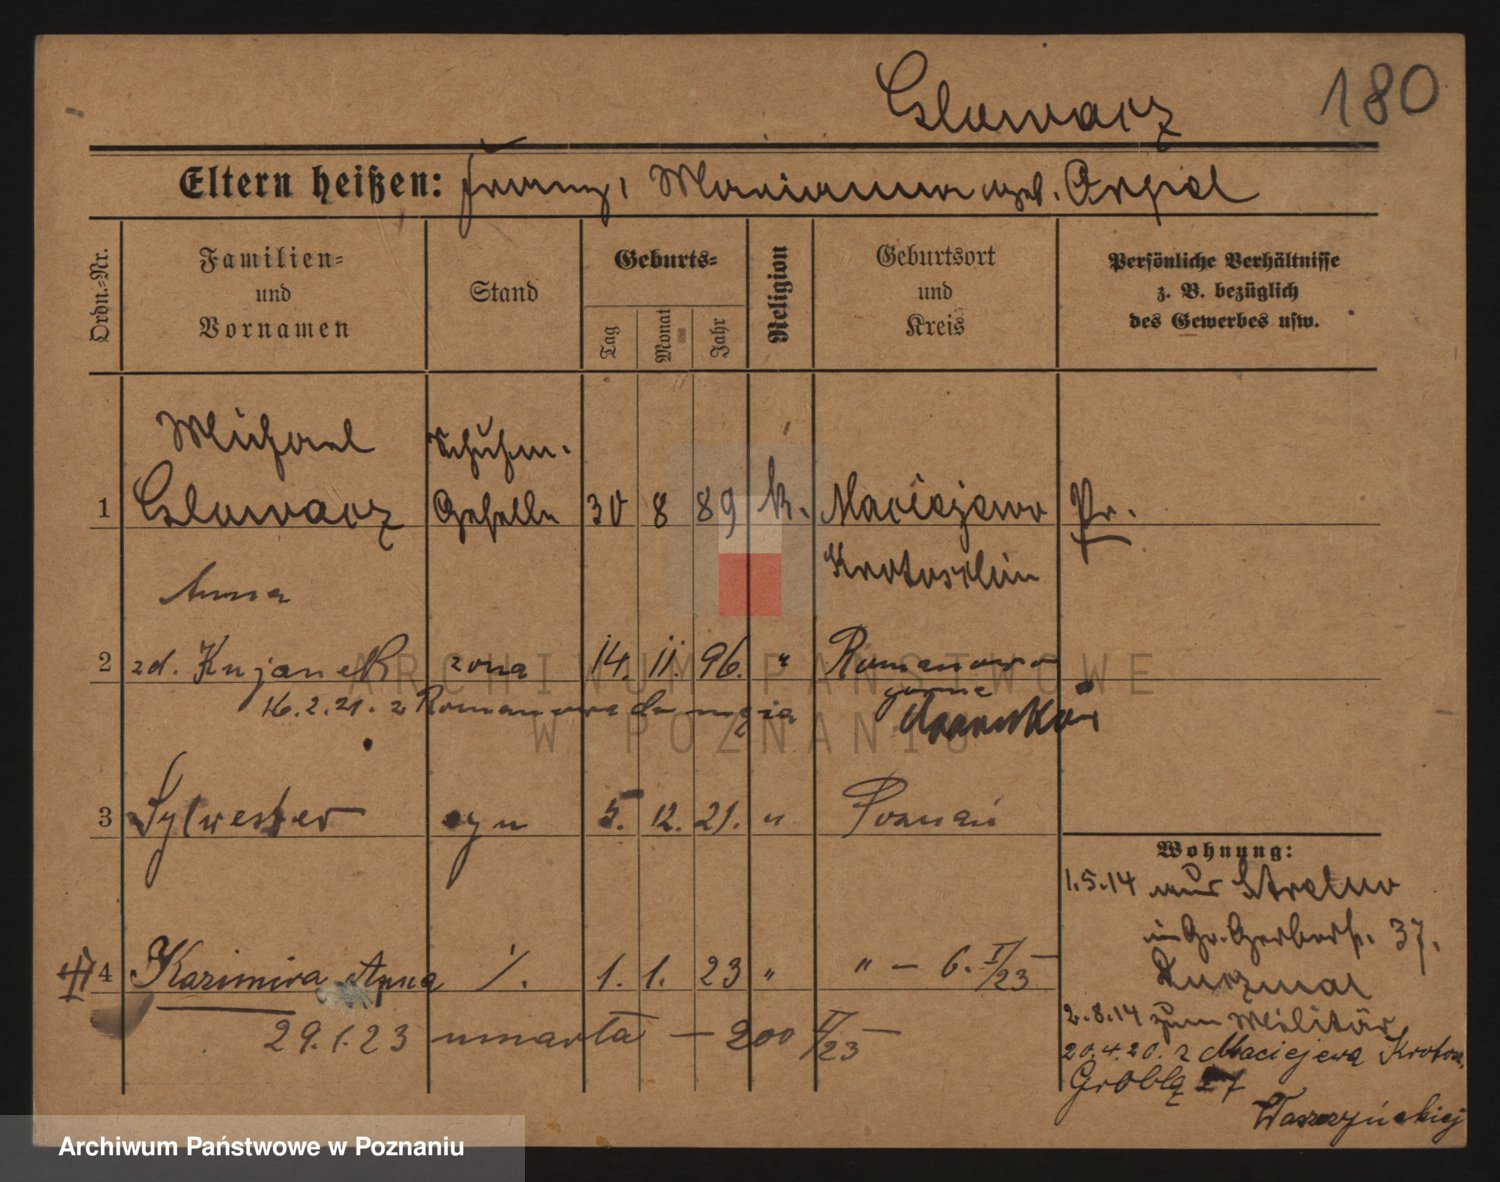 Glowacz
180
Eltern heißen: Franz, Marianna geb. Orpel
Ordn.-Nr.
Familien-
und
Vornamen
Stand
Geburts-
Tag
Monat
Jahr
Religion
Geburtsort
und
Kreis
Persönliche Verhältnisse
z. B. bezüglich
des Gewerbes usw.
Michael
Schuhm.
1 Glowacz Geselle 30 8 89 k. Maciejewo Pr.
Krotoschin
Anna
2 zd. Kujanek żona 14. 11. 96. " Romanowo
górne
16.2.21. z Romanowa do męża
Czarnków
3 Sylwester syn 5. 12. 21. " Poznań
Wohnung:
1.5.14 aus Strelno
in Gr. Gerberstr. 37.
4 Kazimira Anna /. 1. 1. 23 " " – 6. I/23 –
29.1.23 umarła – 200 II/23 –
2.8.14 zum Militär
20.4.20. z Maciejewa Krotosz.
Groblą 27
ARCHIWUM PAŃSTWOWE
W POZNANIU
Archiwum Państwowe w Poznaniu